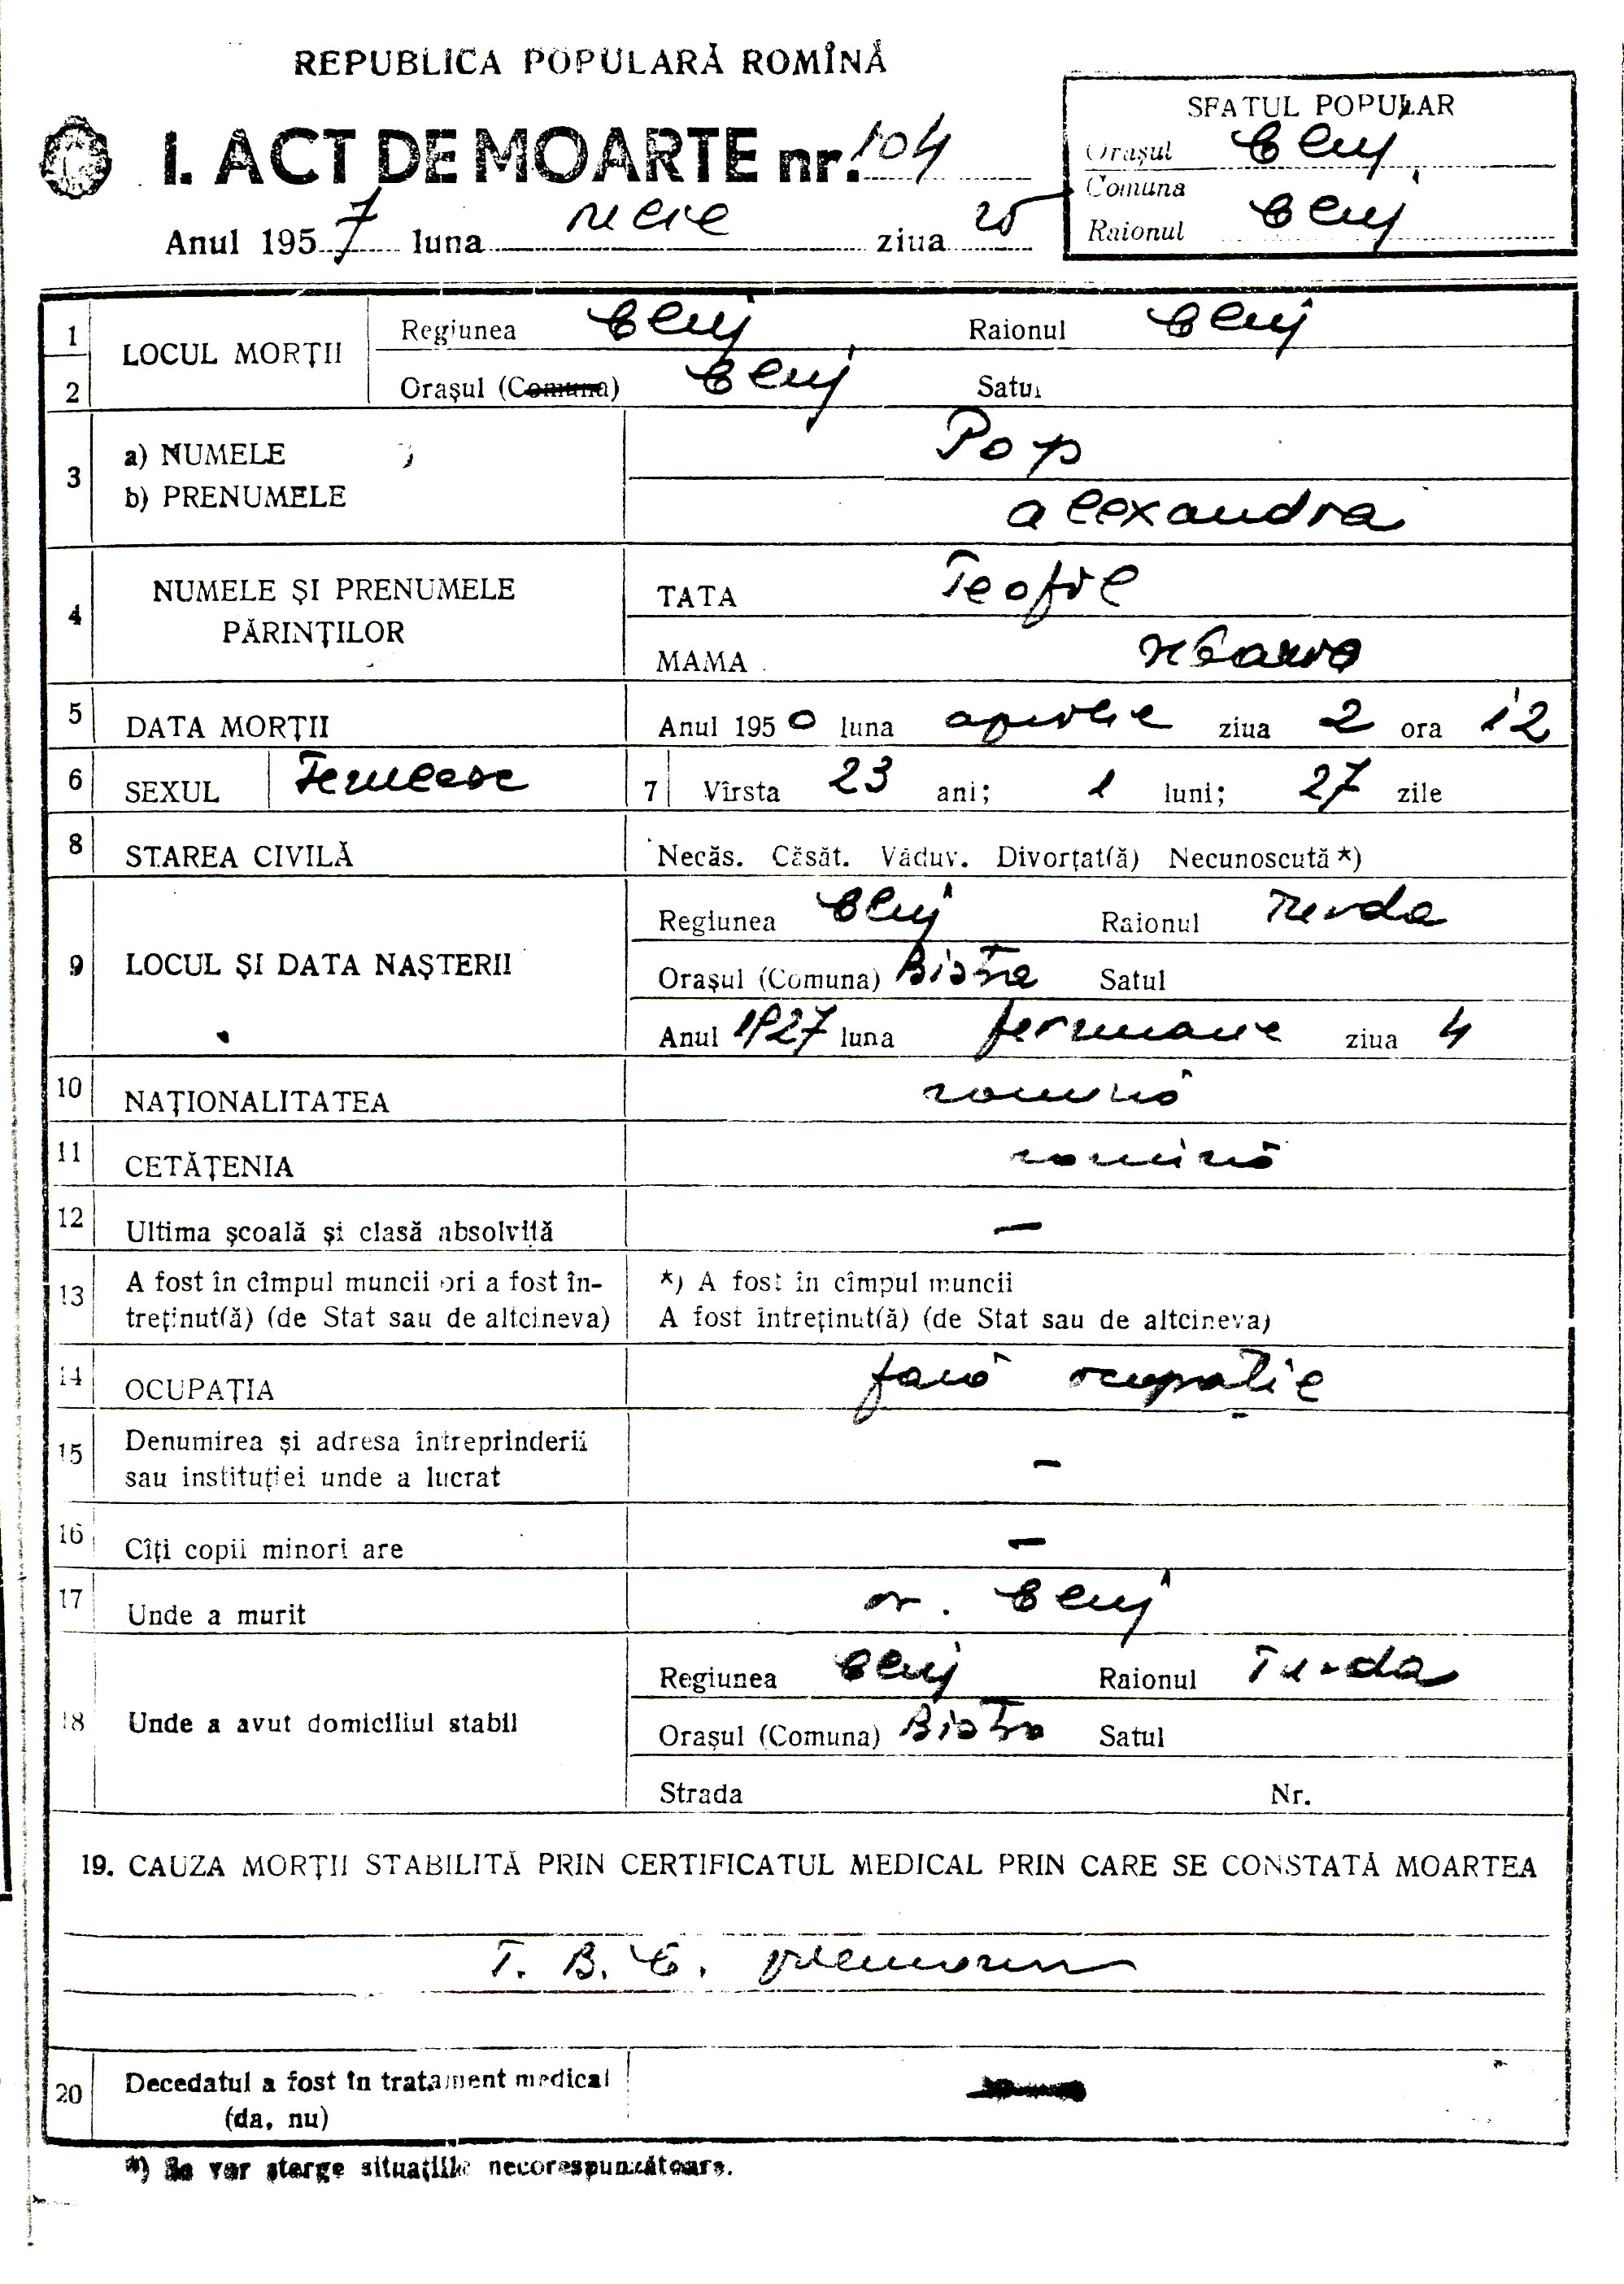 REPUBLICA POPULARĂ ROMÎNĂ
I. ACT DE MOARTE nr. 104
Anul 1957 luna ziua
SFATUL POPULAR
Orașul Cluj
Comuna
Raionul Cluj
1 LOCUL MORȚII Regiunea Cluj Raionul Cluj
2 Orașul (Comuna) Cluj Satul
3 a) NUMELE Pop
b) PRENUMELE Alexandra
4 NUMELE ȘI PRENUMELE PĂRINȚILOR TATA Teofil
MAMA
5 DATA MORȚII Anul 1950 luna aprilie ziua 2 ora 12
6 SEXUL Femeesc 7 Vîrsta 23 ani; 1 luni; 27 zile
8 STAREA CIVILĂ Necăs. Căsăt. Văduv. Divorțat(ă) Necunoscută *)
9 LOCUL ȘI DATA NAȘTERII Regiunea Cluj Raionul Turda
Orașul (Comuna) Satul
Anul 1927 luna februarie ziua 4
10 NAȚIONALITATEA romînă
11 CETĂȚENIA romînă
12 Ultima școală și clasă absolvită —
13 A fost în cîmpul muncii ori a fost în- *) A fost în cîmpul muncii
treținut(ă) (de Stat sau de altcineva) A fost întreținut(ă) (de Stat sau de altcineva)
14 OCUPAȚIA fară ocupație
15 Denumirea și adresa întreprinderii
sau instituției unde a lucrat —
16 Cîți copii minori are —
17 Unde a murit or. Cluj
18 Unde a avut domiciliul stabil Regiunea Cluj Raionul Turda
Orașul (Comuna) Satul
Strada Nr.
19. CAUZA MORȚII STABILITĂ PRIN CERTIFICATUL MEDICAL PRIN CARE SE CONSTATĂ MOARTEA
T. B. C.
20 Decedatul a fost în tratament medical
(da, nu)
*) Se vor șterge situațiile necorespunzătoare.